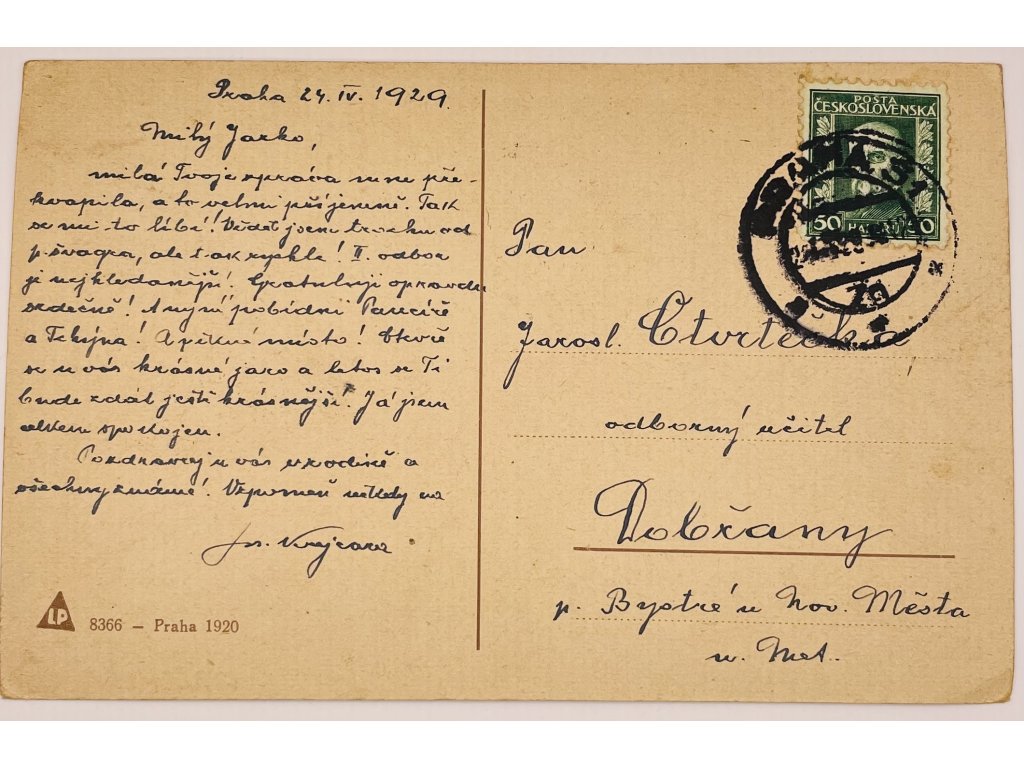 Praha 24. IV. 1929.
Milý Jarko,
milá Tvoje zpráva mne pře-
kvapila, a to velmi příjemně. Tak
se mi to líbí! Věděl jsem trochu od
p. švagra, ale tak rychle! II. odbor
je nejhledanější! Gratuluji opravdu
srdečně! A nyní pobídni
a ! A pěkné místo!
se u vás krásné jaro a letos se Ti
bude zdát ještě krásnější. Já jsem
celkem spokojen.
Pozdravuj u vás v rodině a
všechny známé! Vzpomeň někdy na
Jos.
LP 8366 – Praha 1920
POŠTA
ČESKOSLOVENSKÁ
50 HALÉŘŮ 50
Pan
Jarosl. Čtvrtečka
odborný učitel
Dobřany
p. Bystré u Nov. Města
n. Met.